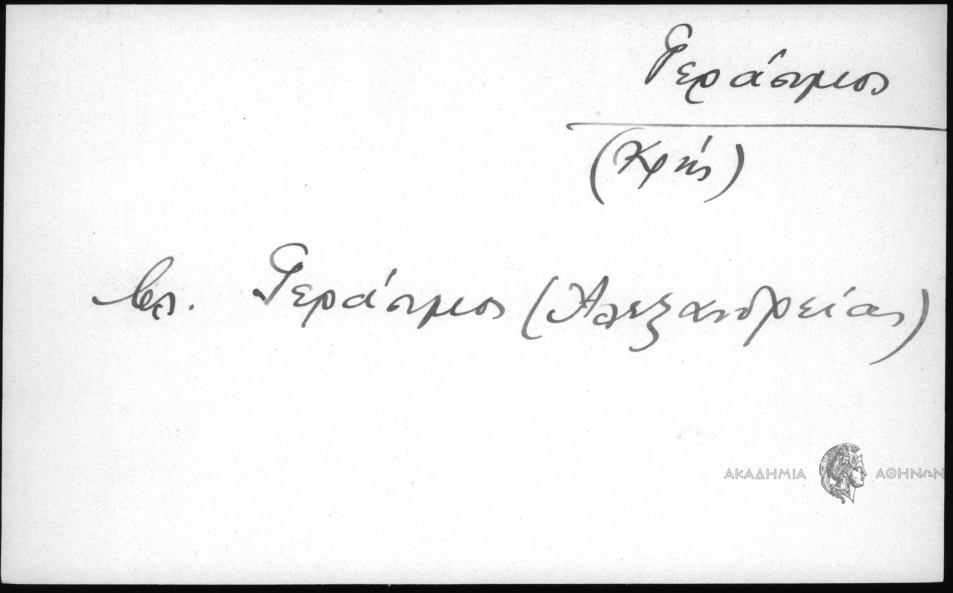 Γεράσιμος
(Κρής)
βλ. Γεράσιμος (Ἀλεξανδρείας)
ΑΚΑΔΗΜΙΑ ΑΘΗΝΩΝ